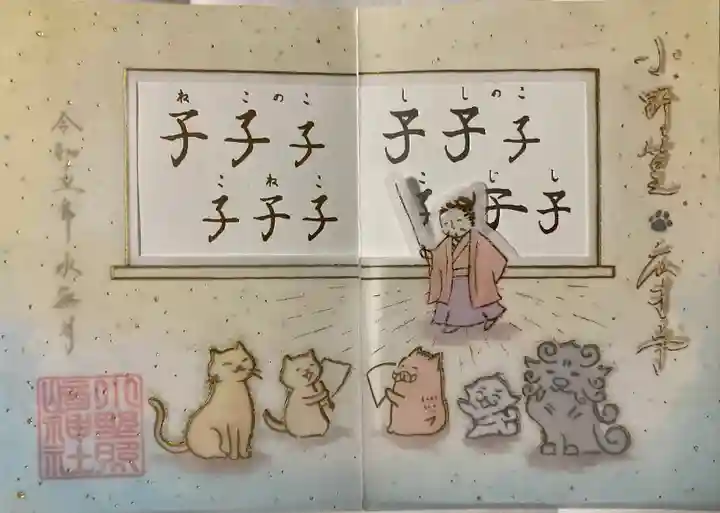 小野篁 広才事
ね こ の こ
子 子 子
こ ね こ
子 子 子
し し の こ
子 子 子
こ じ し
子 子 子
令和五年水無月
小野照崎神社